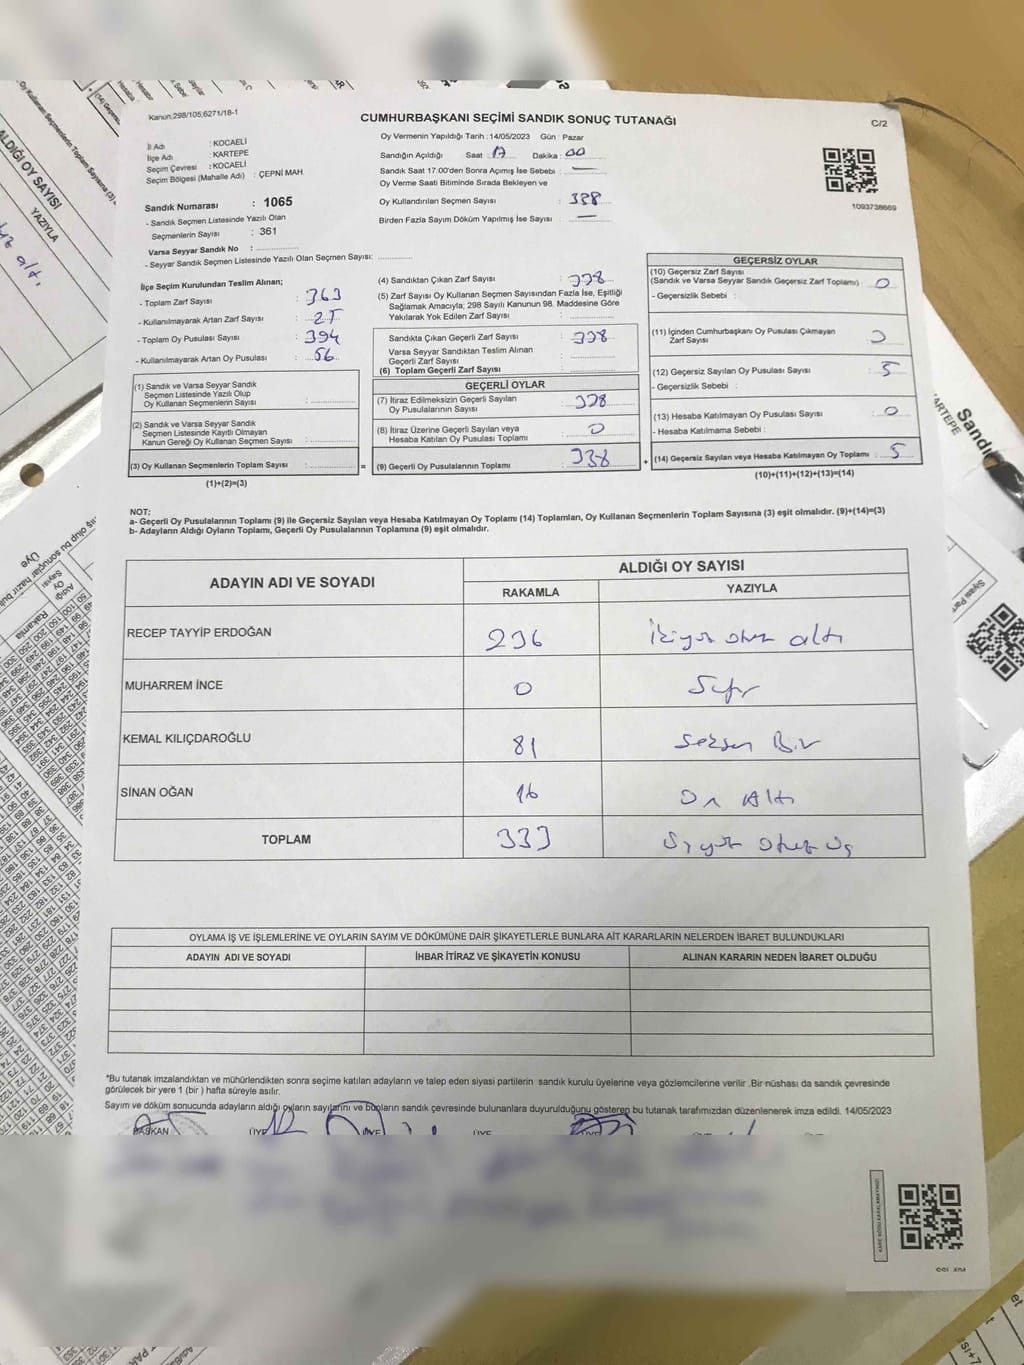 Kanun:298/105;6271/18-1
CUMHURBAŞKANI SEÇİMİ SANDIK SONUÇ TUTANAĞI
C/2
İl Adı : KOCAELİ
İlçe Adı : KARTEPE
Seçim Çevresi : KOCAELİ
Seçim Bölgesi (Mahalle Adı) : ÇEPNİ MAH.
Sandık Numarası : 1065
- Sandık Seçmen Listesinde Yazılı Olan
Seçmenlerin Sayısı : 361
Varsa Seyyar Sandık No :
- Seyyar Sandık Seçmen Listesinde Yazılı Olan Seçmen Sayısı:
Oy Vermenin Yapıldığı Tarih :14/05/2023 Gün : Pazar
Sandığın Açıldığı Saat : 17 Dakika : 00
Sandık Saat 17.00'den Sonra Açımış İse Sebebi : —
Oy Verme Saati Bitiminde Sırada Bekleyen ve
Oy Kullandırılan Seçmen Sayısı : 338
Birden Fazla Sayım Döküm Yapılmış İse Sayısı : —
1093738669
İlçe Seçim Kurulundan Teslim Alınan;
- Toplam Zarf Sayısı : 363
- Kullanılmayarak Artan Zarf Sayısı : 25
- Toplam Oy Pusulası Sayısı : 394
- Kullanılmayarak Artan Oy Pusulası : 56
(1) Sandık ve Varsa Seyyar Sandık
Seçmen Listesinde Yazılı Olup
Oy Kullanan Seçmenlerin Sayısı :
(2) Sandık ve Varsa Seyyar Sandık
Seçmen Listesinde Kayıtlı Olmayan
Kanun Gereği Oy Kullanan Seçmen Sayısı :
(3) Oy Kullanan Seçmenlerin Toplam Sayısı :
=
(1)+(2)=(3)
(4) Sandıktan Çıkan Zarf Sayısı : 338
(5) Zarf Sayısı Oy Kullanan Seçmen Sayısından Fazla İse, Eşitliği
Sağlamak Amacıyla; 298 Sayılı Kanunun 98. Maddesine Göre
Yakılarak Yok Edilen Zarf Sayısı :
Sandıkta Çıkan Geçerli Zarf Sayısı : 338
Varsa Seyyar Sandıktan Teslim Alınan
Geçerli Zarf Sayısı :
(6) Toplam Geçerli Zarf Sayısı :
GEÇERLİ OYLAR
(7) İtiraz Edilmeksizin Geçerli Sayılan
Oy Pusulalarının Sayısı : 338
(8) İtiraz Üzerine Geçerli Sayılan veya
Hesaba Katılan Oy Pusulası Toplamı : 0
(9) Geçerli Oy Pusulalarının Toplamı : 338
+
GEÇERSİZ OYLAR
(10) Geçersiz Zarf Sayısı
(Sandık ve Varsa Seyyar Sandık Geçersiz Zarf Toplamı) : 0
- Geçersizlik Sebebi :
(11) İçinden Cumhurbaşkanı Oy Pusulası Çıkmayan
Zarf Sayısı : 0
(12) Geçersiz Sayılan Oy Pusulası Sayısı : 5
- Geçersizlik Sebebi :
(13) Hesaba Katılmayan Oy Pusulası Sayısı : 0
- Hesaba Katılmama Sebebi :
(14) Geçersiz Sayılan veya Hesaba Katılmayan Oy Toplamı : 5
(10)+(11)+(12)+(13)=(14)
NOT:
a- Geçerli Oy Pusulalarının Toplamı (9) ile Geçersiz Sayılan veya Hesaba Katılmayan Oy Toplamı (14) Toplamları, Oy Kullanan Seçmenlerin Toplam Sayısına (3) eşit olmalıdır. (9)+(14)=(3)
b- Adayların Aldığı Oyların Toplamı, Geçerli Oy Pusulalarının Toplamına (9) eşit olmalıdır.
ADAYIN ADI VE SOYADI
ALDIĞI OY SAYISI
RAKAMLA YAZIYLA
RECEP TAYYİP ERDOĞAN 236 İkiyüz otuz altı
MUHARREM İNCE 0 Sıfır
KEMAL KILIÇDAROĞLU 81 Seksen Bir
SİNAN OĞAN 16 On Altı
TOPLAM 333 Üçyüz otuz üç
OYLAMA İŞ VE İŞLEMLERİNE VE OYLARIN SAYIM VE DÖKÜMÜNE DAİR ŞİKAYETLERLE BUNLARA AİT KARARLARIN NELERDEN İBARET BULUNDUKLARI
ADAYIN ADI VE SOYADI İHBAR İTİRAZ VE ŞİKAYETİN KONUSU ALINAN KARARIN NEDEN İBARET OLDUĞU
*Bu tutanak imzalandıktan ve mühürlendikten sonra seçime katılan adayların ve talep eden siyasi partilerin sandık kurulu üyelerine veya gözlemcilerine verilir .Bir nüshası da sandık çevresinde
görülecek bir yere 1 (bir ) hafta süreyle asılır.
Sayım ve döküm sonucunda adayların aldığı oyların sayılarını ve bunların sandık çevresinde bulunanlara duyurulduğunu gösteren bu tutanak tarafımızdan düzenlenerek imza edildi. 14/05/2023
BAŞKAN ÜYE ÜYE ÜYE ÜYE
ALDIĞI OY SAYISI
YAZIYLA
KARTEPE
Sandı